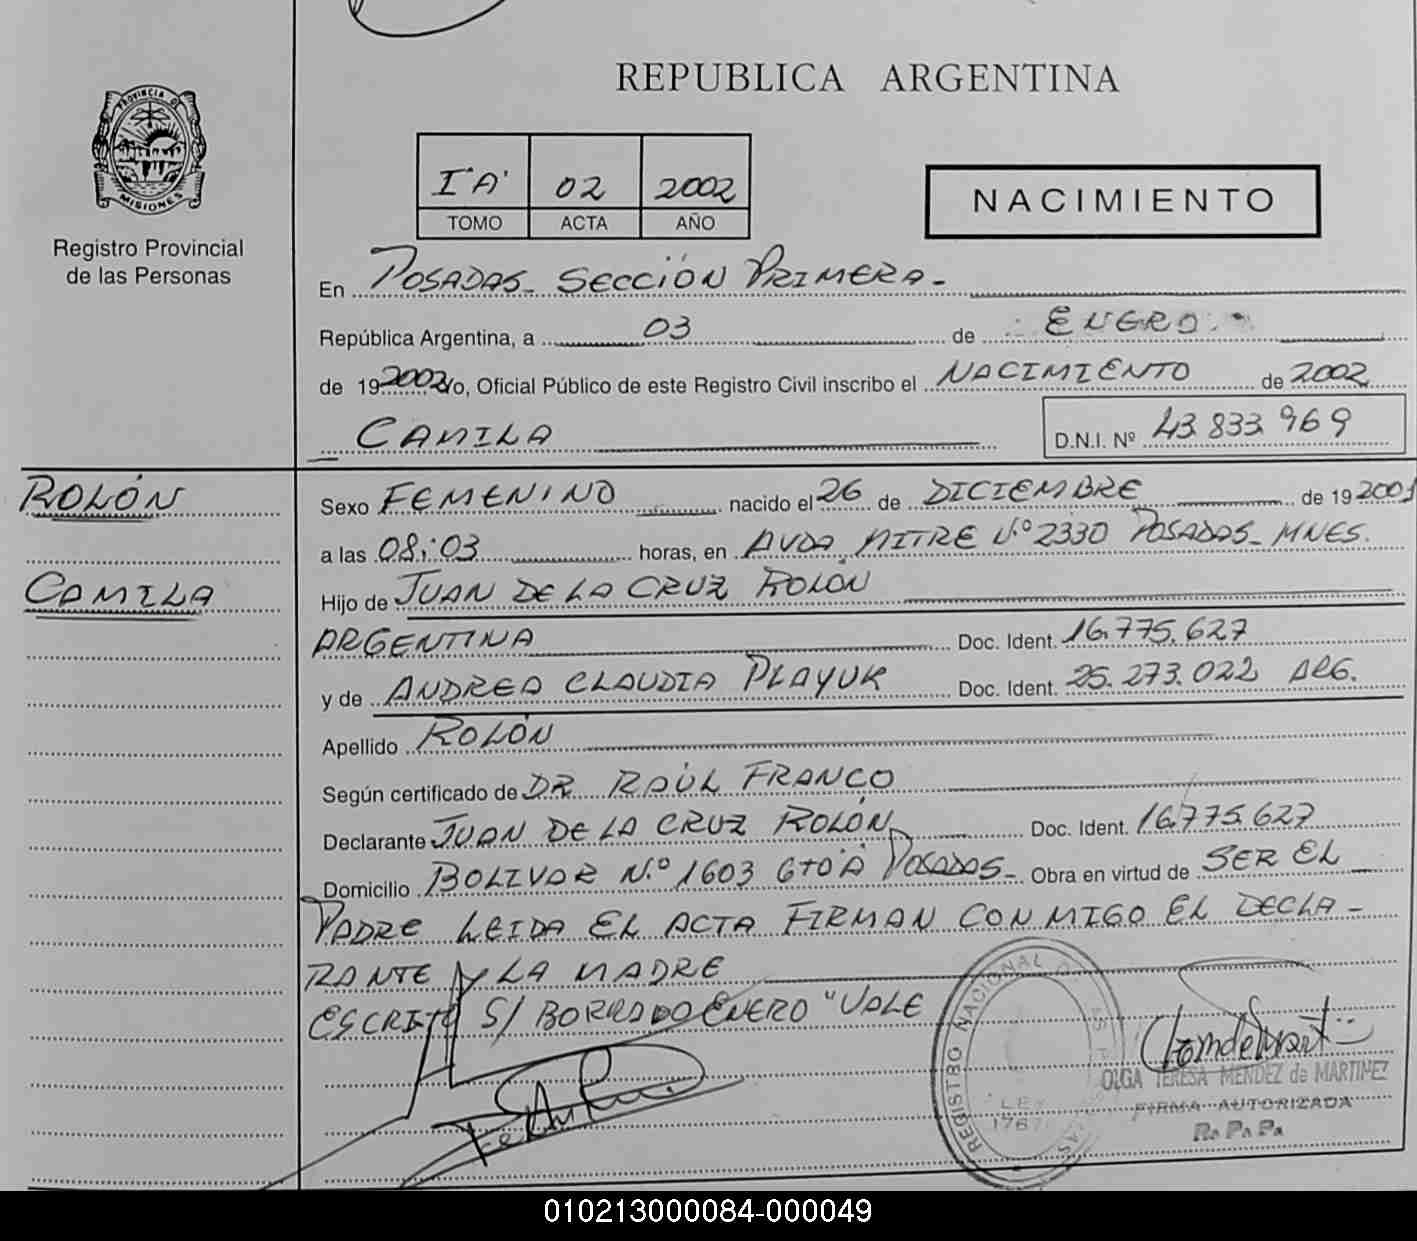 PROVINCIA DE
MISIONES
Registro Provincial
de las Personas
REPUBLICA ARGENTINA
I "A" 02 2002
TOMO ACTA AÑO
NACIMIENTO
En POSADAS - SECCIÓN PRIMERA -
República Argentina, a 03 de ENERO
de 19 2002 Yo, Oficial Público de este Registro Civil inscribo el NACIMIENTO de 2002
CAMILA D.N.I. Nº 43.833.969
ROLÓN
CAMILA
Sexo FEMENINO nacido el 26 de DICIEMBRE de 19 2001
a las 08:03 horas, en AVDA MITRE N.º 2330 POSADAS - MNES.
Hijo de JUAN DE LA CRUZ ROLÓN
ARGENTINA Doc. Ident. 16.775.627
y de ANDREA CLAUDIA PLAYUK Doc. Ident. 25.273.022 ARG.
Apellido ROLÓN
Según certificado de DR RAÚL FRANCO
Declarante JUAN DE LA CRUZ ROLÓN Doc. Ident. 16.775.627
Domicilio BOLIVAR N.º 1603 6to "A" POSADAS - Obra en virtud de SER EL
PADRE LEIDA EL ACTA FIRMAN CONMIGO EL DECLA-
RANTE Y LA MADRE
ESCRITO S/ BORRADO ENERO "VALE
REGISTRO NACIONAL DE LAS
LEY
OLGA TERESA MENDEZ de MARTINEZ
FIRMA AUTORIZADA
R. P. P.
010213000084-000049